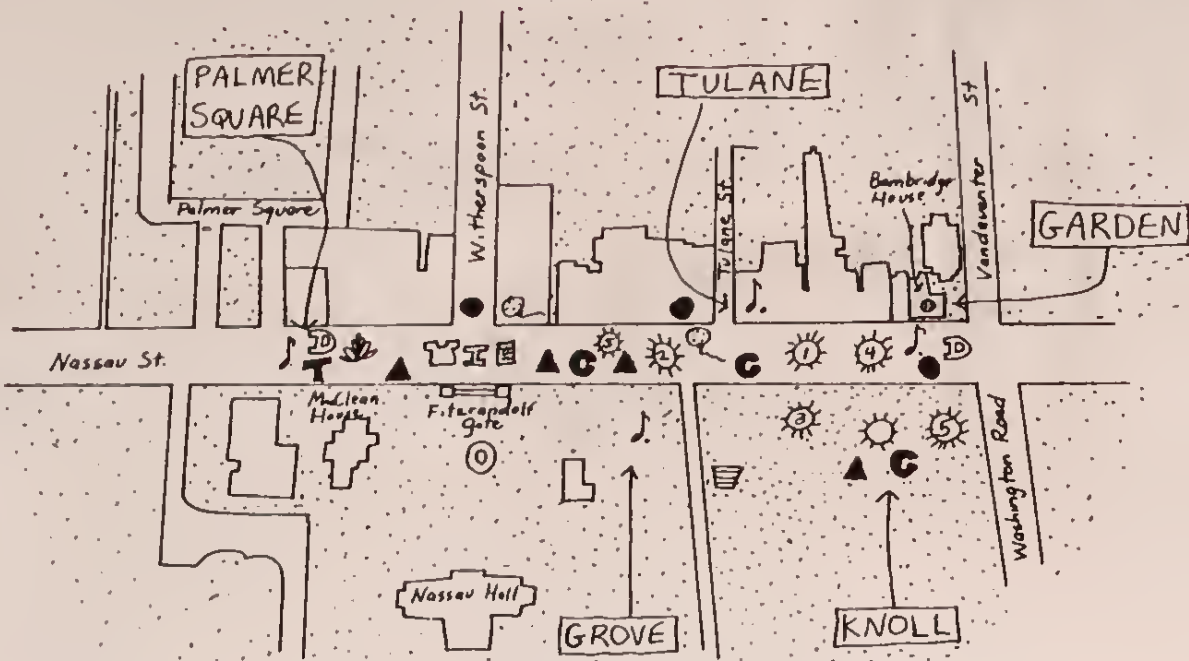 PALMER
SQUARE
TULANE
GARDEN
Palmer Square
Witherspoon St.
Tulane St.
Bambridge
House
Vandeventer St
Nassau St.
D
T
I
S
2
C
1
4
D
McClean
House
Fitzrandolf
Gate
3
5
C
Washington Road
Nassau Hall
GROVE
KNOLL